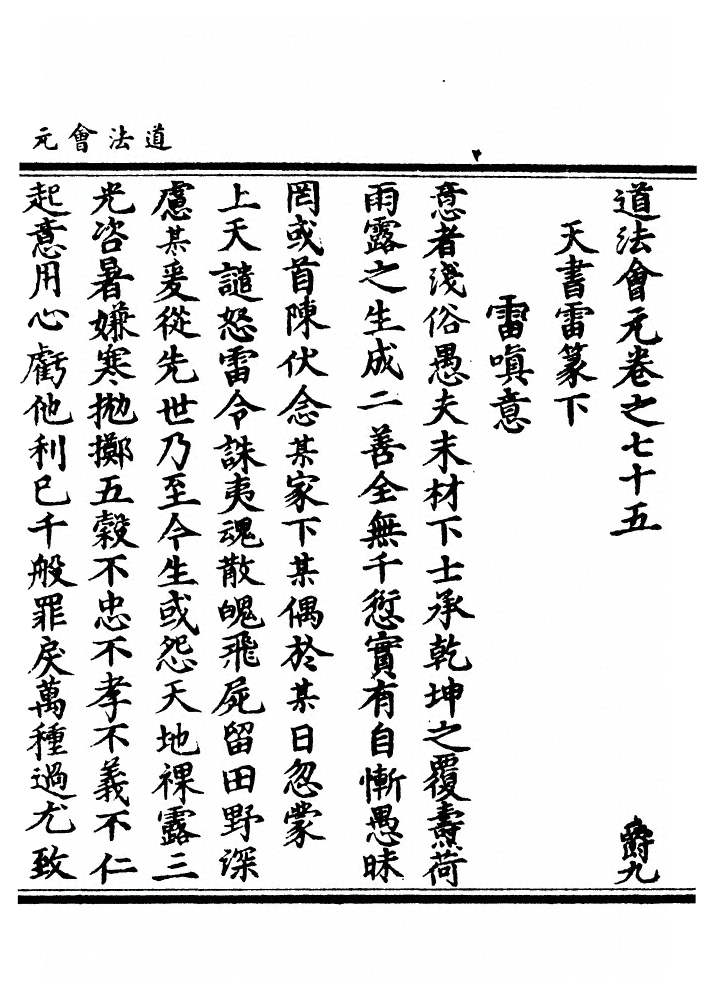 道法會元
道法會元卷之七十五
爵九
天書雷篆下
雷嗔意
意者淺俗愚夫末材下士承乾坤之覆燾荷
雨露之生成二善全無千愆實有自慚愚昧
罔或首陳伏念某家下某偶於某日忽蒙
上天譴怒雷令誅夷魂散魄飛屍留田野深
慮某爰從先世乃至今生或怨天地祼露三
光咨暑嫌寒拋擲五穀不忠不孝不義不仁
起意用心虧他利已千般罪戾萬種過尤致